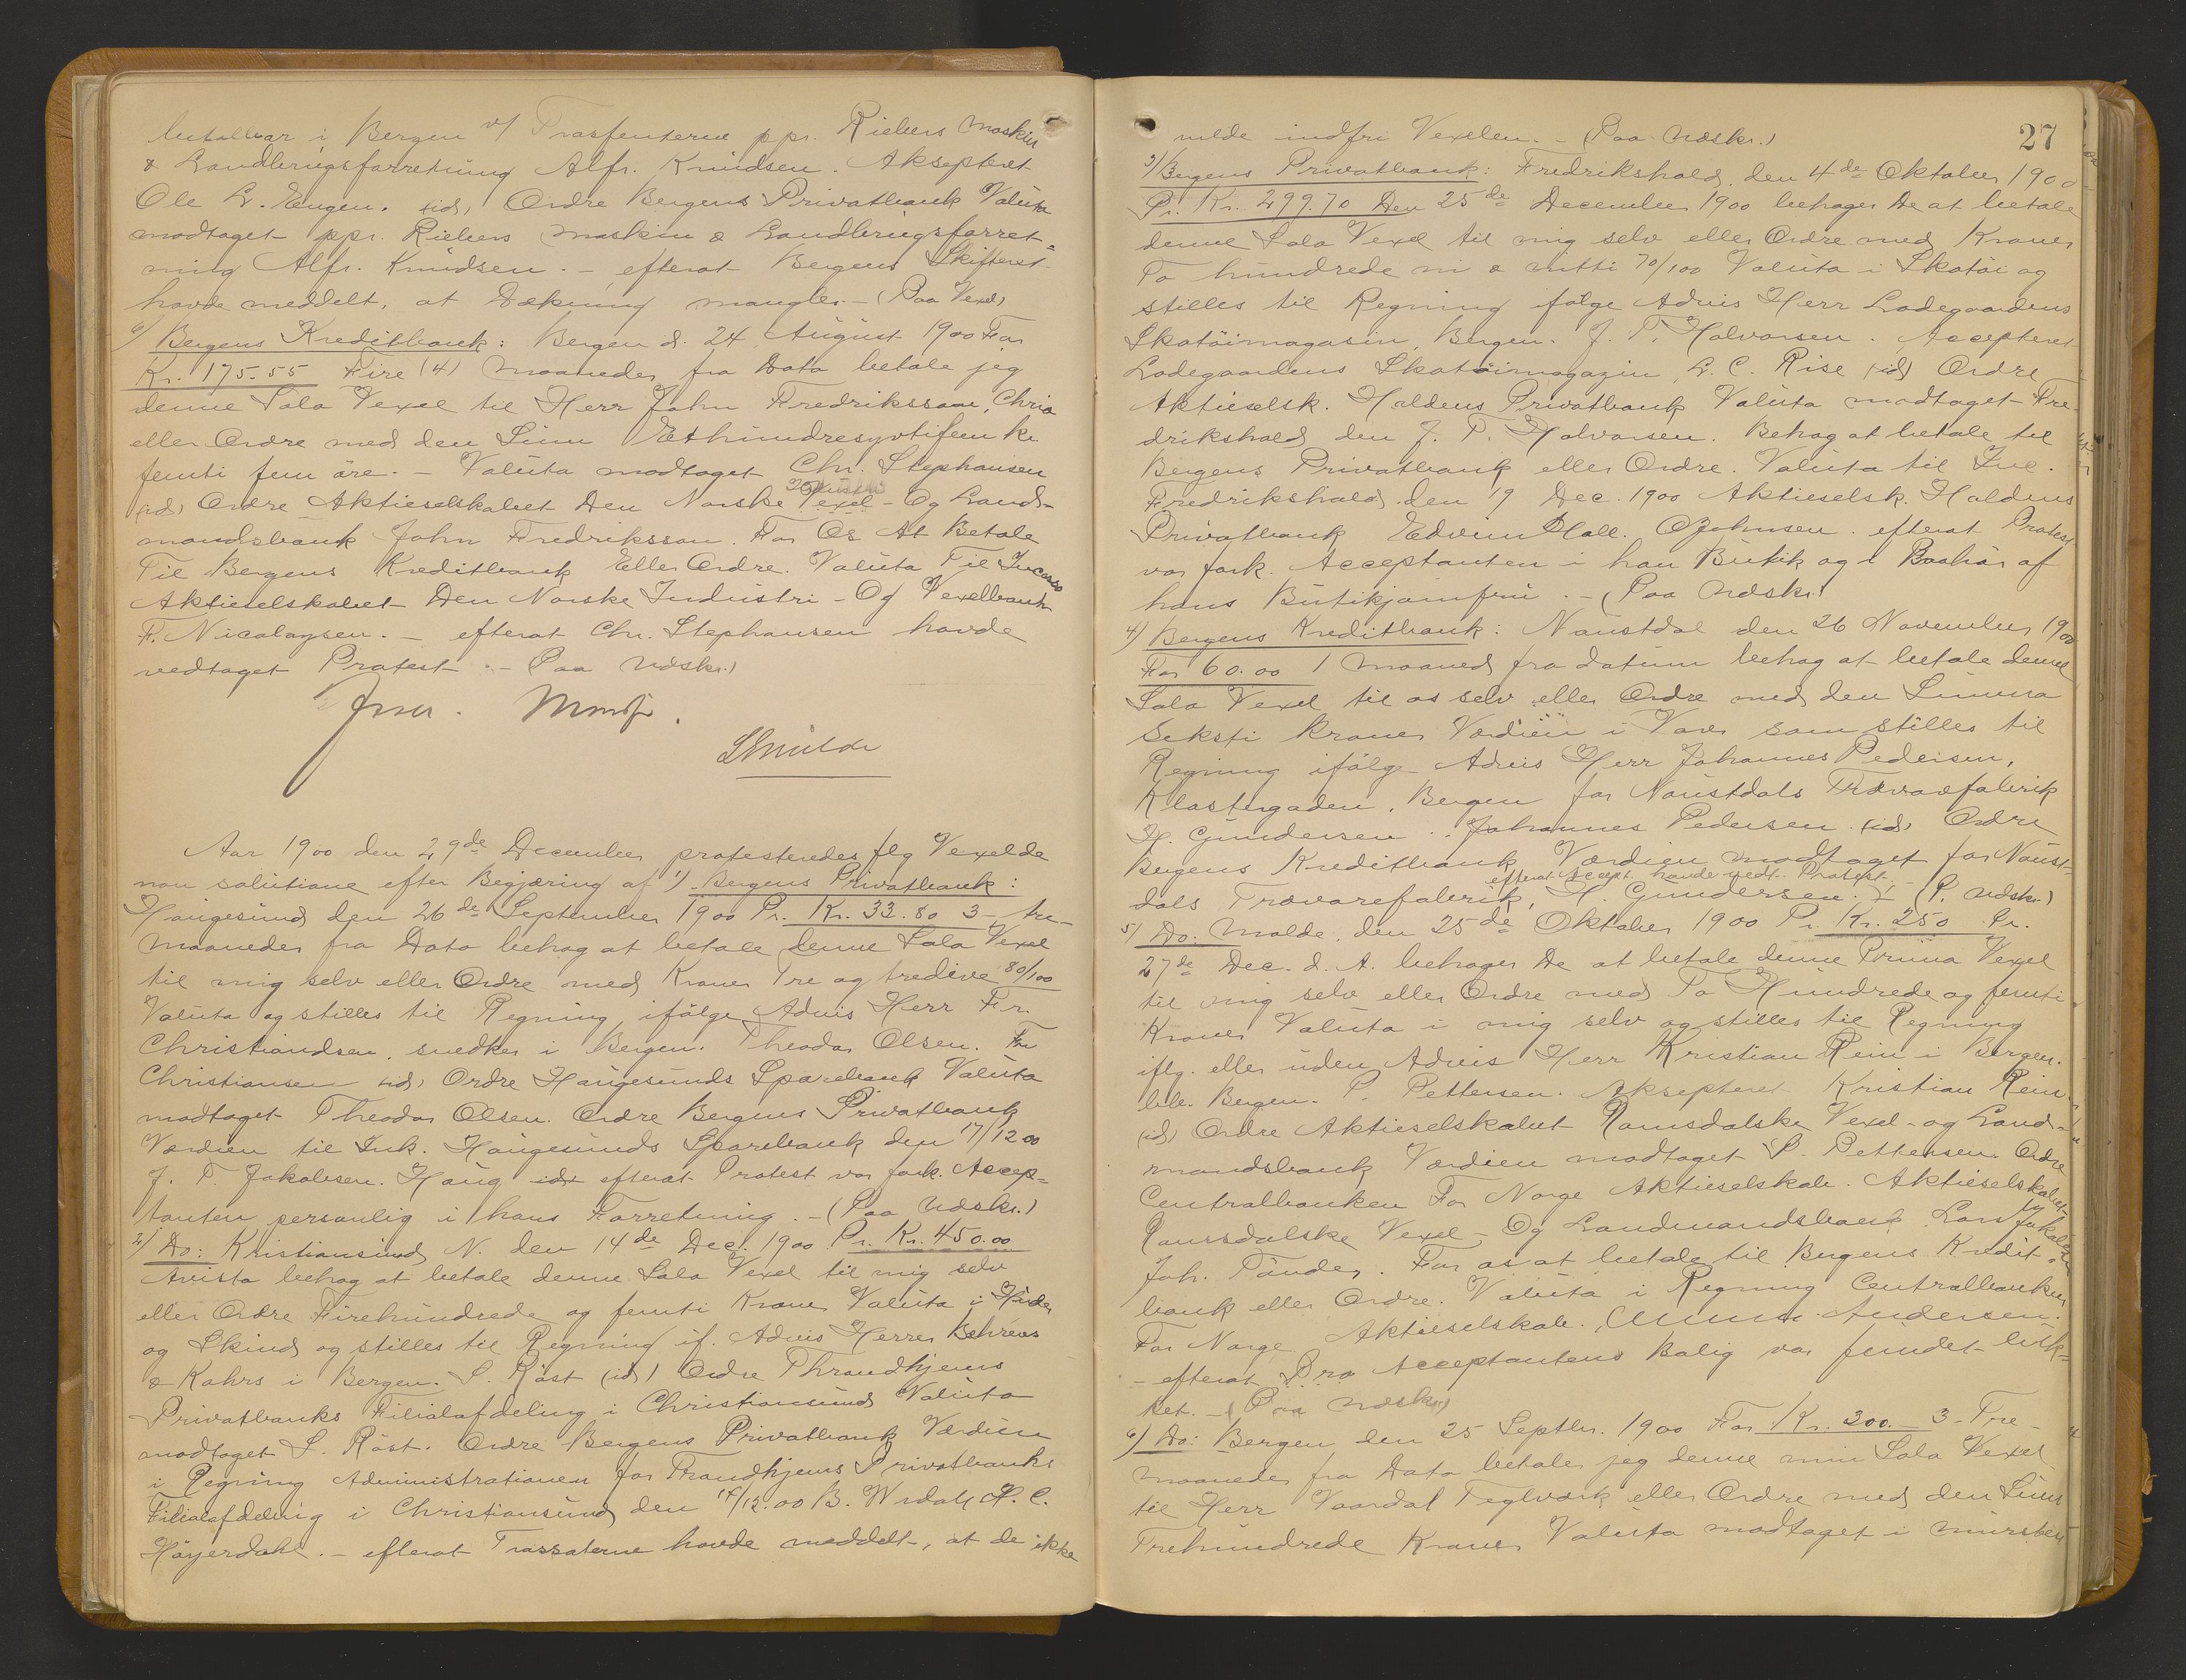 betalbar i Bergen v/ Trasfenterne ppr. Riebers Maskin
& Landbrugsforretning Alfr. Knudsen. Aksepteret
Ole L. Engen. (id) Ordre Bergens Privatbank Valuta
modtaget ppr. Riebers Maskin & Landbrugsforret-
ning Alfr. Knudsen. – efterat Bergens Skifteret
havde meddelt, at Dækning mangler. – (Paa Vexel)
6) Bergens Kreditbank: Bergen d. 24 August 1900 For
Kr. 175.55 Fire (4) Maaneder fra Dato betale jeg
denne Sola Vexel til Herr John Fredriksson, Chria
eller Ordre med den Sum Ethundresyttifem kr.
femti fem øre. – Valuta modtaget Chr. Stephansen
(id) Ordre Aktieselskabet Den Norske Vexel- Og Land-
mandsbank John Fredriksson. For Os At Betale
Til Bergens Kreditbank Eller Ordre. Valuta Til Incasso
Aktieselskabet Den Norske Industri- Og Vexelbank
F. Nicolaysen. – efterat Chr. Stephansen havde
vedtaget Protest. – (Paa Udskr.)
Aar 1900 den 29de December protesteredes flg Vexel de
non solutione efter Begjæring af 1) Bergens Privatbank:
Haugesund den 26de September 1900 Pr. Kr. 33.80 3 – tre –
Maaneder fra Dato behag at betale denne Sola Vexel
til mig selv eller Ordre med Kroner Tre og tredive 80/100
Valuta og stilles til Regning ifølge Advis Herr Fr.
Christiandsen, snedker i Bergen. Theodor Olsen. Fr.
Christiansen (id) Ordre Haugesunds Sparebank Valuta
modtaget Theodor Olsen. Ordre Bergens Privatbank
Værdien til Ink. Haugesunds Sparebank den 17/12 00
J. T. Jakobsen. Haug efterat Protest var fork. Accep-
tanten personlig i hans Forretning. – (Paa Udskr.)
2) Do: Kristiansund N. den 14de Dec. 1900 Pr. Kr. 450.00
Avista behag at betale denne Sola Vexel til mig selv
eller Ordre Firehundrede og femti Kroner Valuta i Huder
og Skind og stilles til Regning if. Advis Herrer Behrens
& Kahrs i Bergen. S. Røst (id) Ordre Throndhjems
Privatbanks Filialafdeling i Christiansund Valuta
modtaget S. Røst. Ordre Bergens Privatbank Værdien
i Regning Administrationen for Trondhjems Privatbanks
Filialafdeling i Christiansund, den 17/12.00 B. Wrdahl H. C.
Høyerdahl. – efterat Trassaterne havde meddelt, at de ikke
27
vilde indfri Vexelen. – (Paa Udskr.)
3) Bergens Privatbank: Fredrikshald, den 4de Oktober 1900
Pr. Kr. 299.70 Den 25de December 1900 behager De at betale
denne Sola Vexel til mig selv eller Ordre med Kroner
To hundrede ni & nitti 70/100 Valuta i Skotøi og
stilles til Regning ifølge Advis Herr Ladegaardens
Skotøimagasin, Bergen. J. P. Halvorsen. Accepteret
Ladegaardens Skotøimagazin, L. C. Rise (id) Ordre
Aktieselsk. Haldens Privatbank Valuta modtaget Fre-
drikshald den J. P. Halvorsen. Behag at betale til
Bergens Privatbank eller Ordre. Valuta til Inc.
Fredrikshald den 19 Dec. 1900 Aktieselsk. Haldens
Privatbank Edvin Hall. O Johnsen. efterat Protest
var fork. Acceptanten i han Butik og i Paahør af
hans Butikjomfru. – (Paa Udskr.)
4) Bergens Kreditbank: Naustdal den 26 November 1900
For 60.00 1 Maaned fra datum behag at betale denne
Sola Vexel til os selv eller Ordre med den Summa
Seksti kroner Værdien i Varer som stilles til
Regning ifølg. Advis Herr Johannes Pedersen,
Klostergaden, Bergen for Naustdals Trævarefabrik
H. Gundersen. Johannes Pedersen (id) Ordre
Bergens Kreditbank, Værdien modtaget for Naust-
efterat Accept. havde vedt. Protest.
dals Trævarefabrik, H. Gundersen. – (P. Udskr.)
5) Do: Molde, den 25de Oktober 1900 Pr. Kr. 250 Pr.
27de Dec. d. A. behager De at betale denne Prima Vexel
til mig selv eller Ordre med To Hundrede og femti
Kroner Valuta i mig selv og stilles til Regning
iflg. eller uden Advis Herr Kristian Rein i Bergen.
P. Pettersen. Aksepteret Kristian Rein
(id) Ordre Aktieselskabet Romsdalske Vexel- og Land-
mandsbank Værdien modtaget P. Pettersen. Ordre
Centralbanken For Norge Aktieselskab. Aktieselskabet
Romsdalske Vexel- Og Landmandsbank Lars Jakobsen
Joh. Tønder. For os at betale til Bergens Kredit-
bank eller Ordre. Valuta i Regning Centralbanken
For Norge Aktieselskab. Andersen.
– efterat Acceptantens Bolig var fundet luk-
ket. – (Paa Udskr.)
6) Do: Bergen den 25 Septbr. 1900 For Kr. 300. – 3 – Tre –
Maaneder fra Dato betaler jeg denne min Sola Vexel
til Herr Vaardal Teglværk eller Ordre med den Sum
Trehundrede Kroner Valuta modtaget i mursten